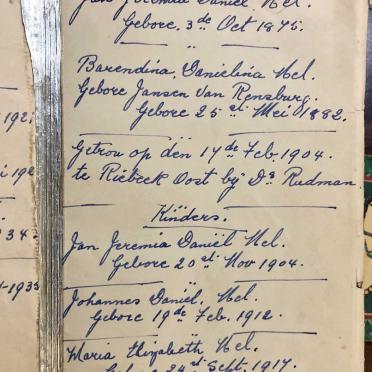 Jan Jeremia Daniel Nel.
Gebore. 3de Oct 1875.
Barendina, Danielina Nel.
Gebore Jansen van Rensburg.
Gebore 25st Mei 1882.
Getrou op den 14de Feb. 1904.
te Riebeek Oost bij Ds Rudman.
Kinders.
Jan Jeremia Daniël Nel.
Gebore 20st Nov 1904.
Johannes Daniel, Nel.
Gebore 19de Feb. 1912.
Maria Elizabeth Nel.
Gebore 24st Sept. 1917.